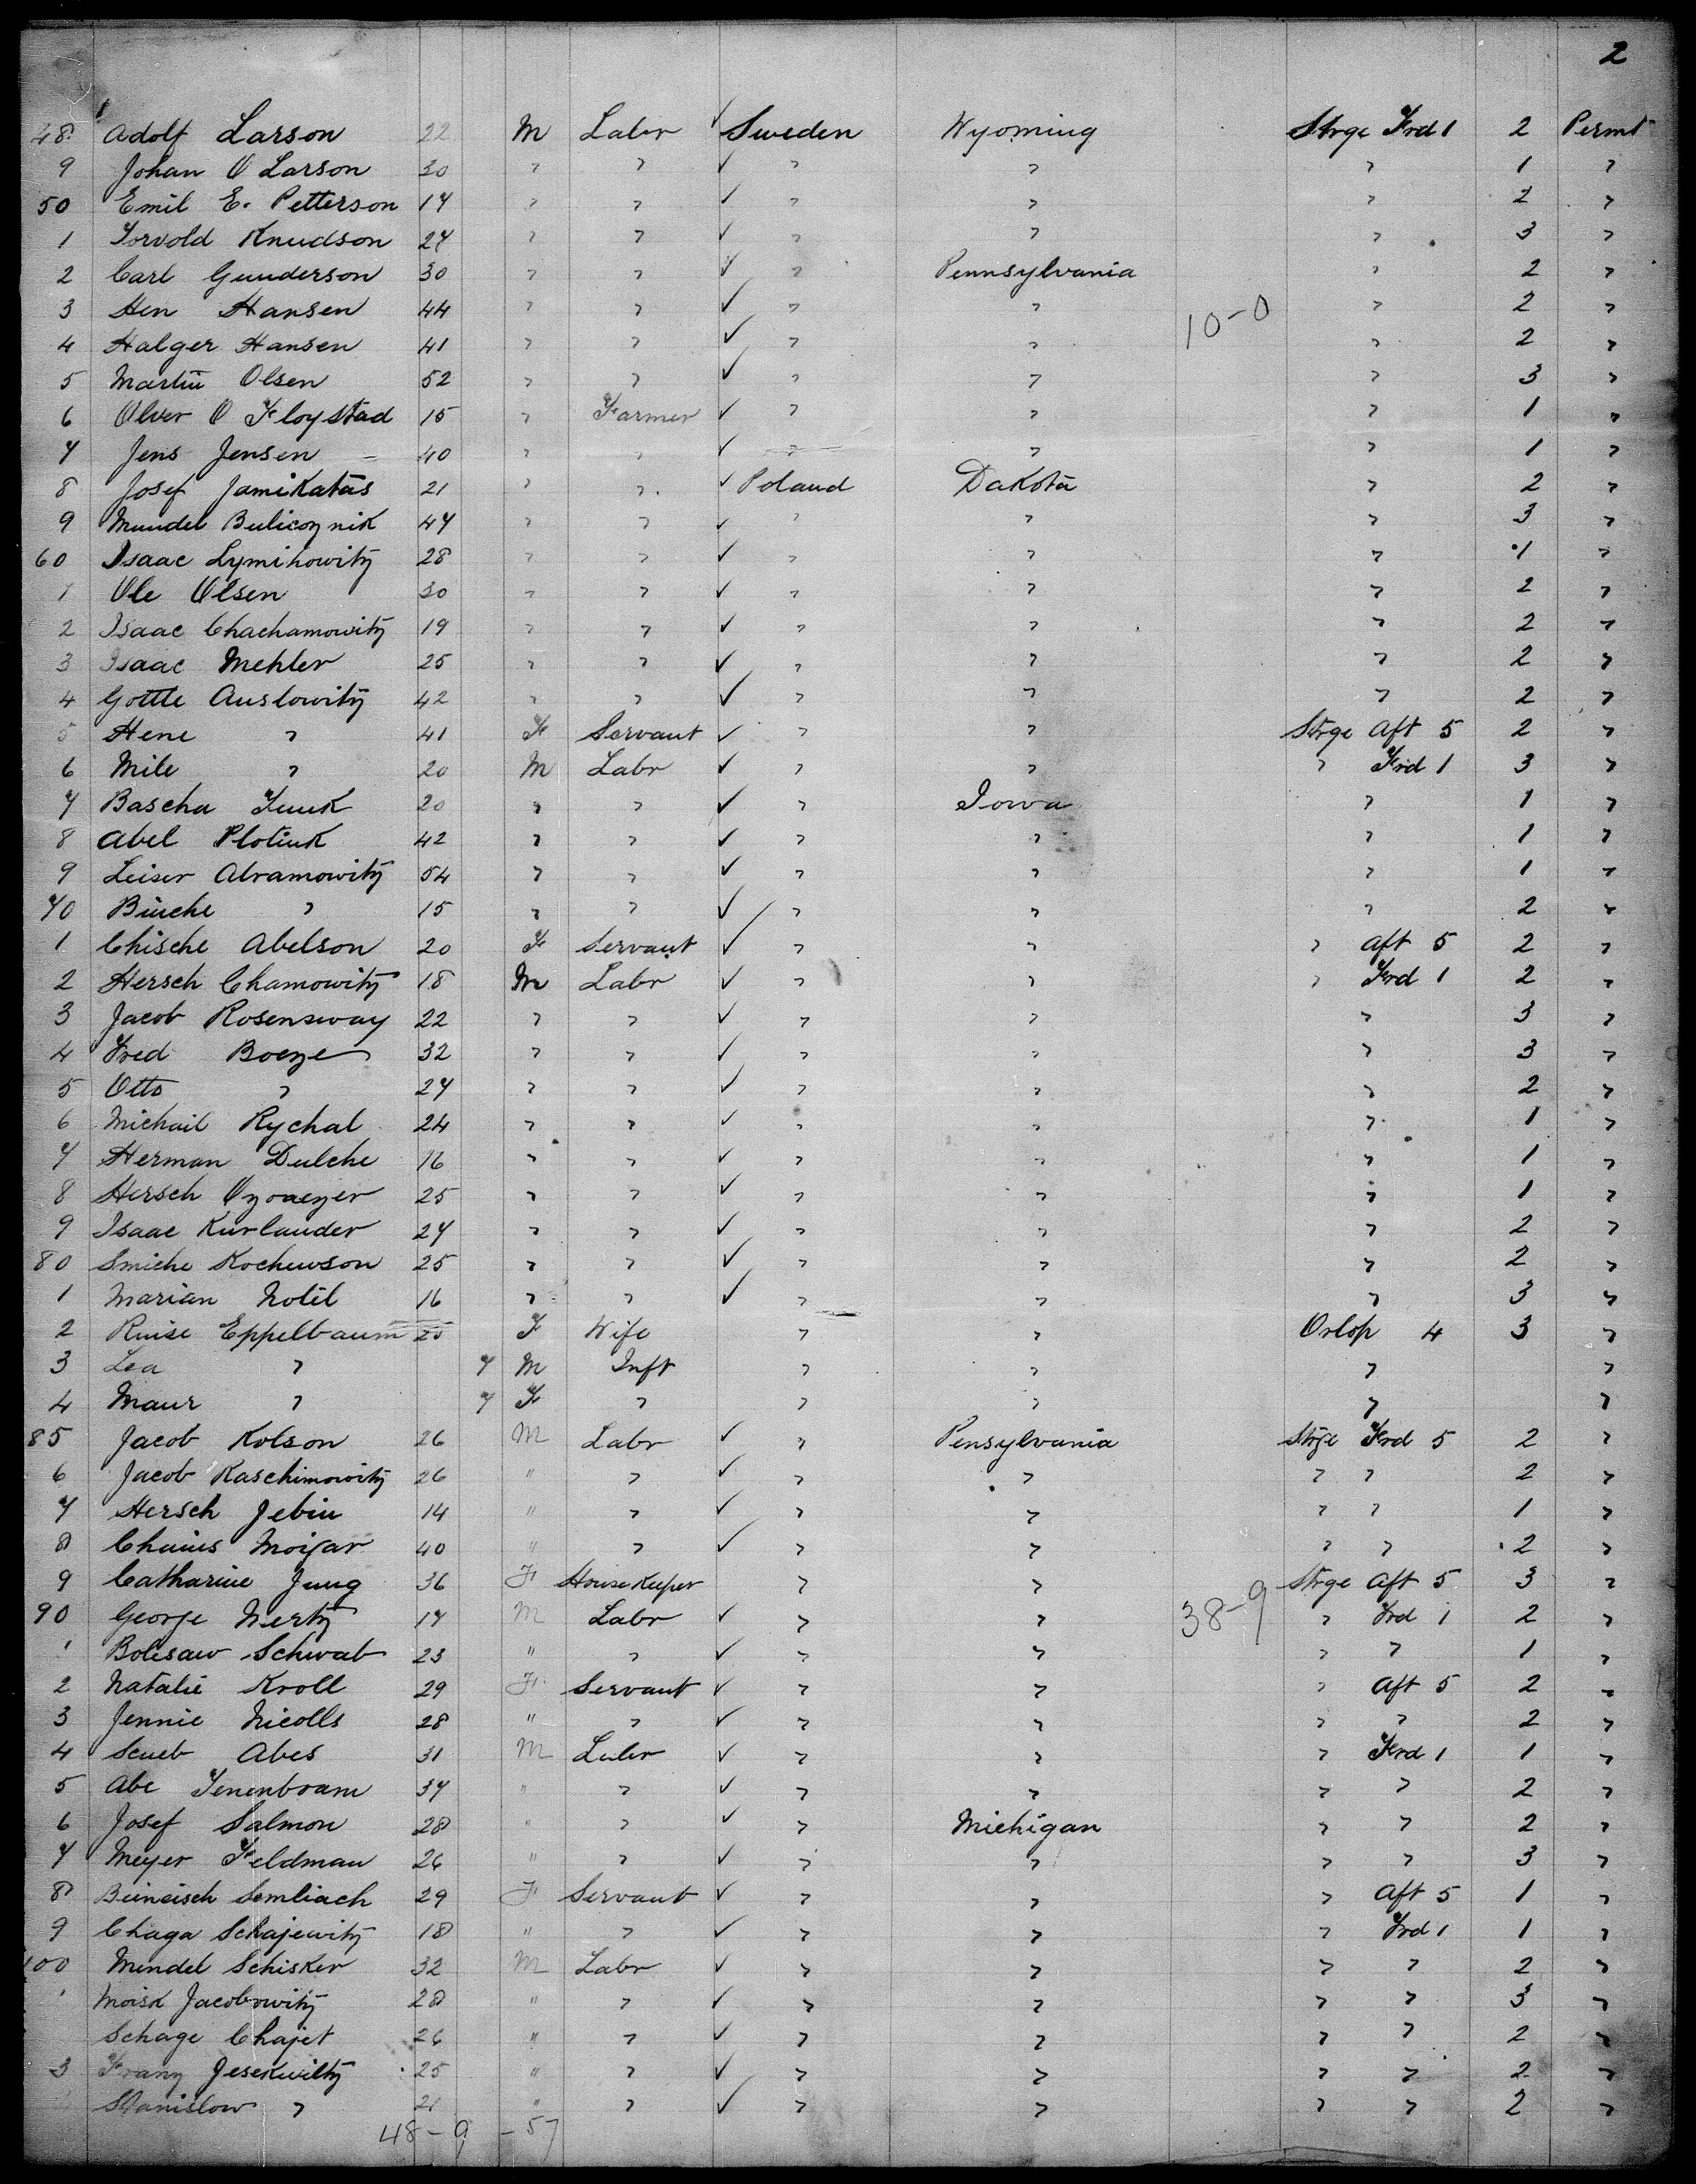 2
48 Adolf Larson 22 M Labr ✓ Sweden Wyoming Strge Frd 1 2 Permt
9 Johan O Larson 30 " " ✓ " " " 1 "
50 Emil E. Petterson 17 " " ✓ " " " 2 "
1 Torvold Knudson 27 " " ✓ " " " 3 "
2 Carl Gunderson 30 " " ✓ " Pennsylvania " 2 "
3 Hen Hansen 44 " " ✓ " " 10-0 " 2 "
4 Halger Hansen 41 " " ✓ " " " 2 "
5 Martin Olsen 52 " " ✓ " " " 3 "
6 Olver O Floystad 15 " Farmer ✓ " " " 1 "
7 Jens Jensen 40 " " ✓ " " " 1 "
8 Josef Jamikatas 21 " " ✓ Poland Dakota " 2 "
9 Mundel Bulicoznik 47 " " ✓ " " " 3 "
60 Isaac Lymihowitz 28 " " ✓ " " " 1 "
1 Ole Olsen 30 " " ✓ " " " 2 "
2 Isaac Chachamowitz 19 " " ✓ " " " 2 "
3 Isaac Mehler 25 " " ✓ " " " 2 "
4 Gottle Auslowitz 42 " " ✓ " " " 2 "
5 Hene " 41 F Servant ✓ " " Strge Aft 5 2 "
6 Mile " 20 M Labr ✓ " " " Frd 1 3 "
7 Bascha Funk 20 " " ✓ " Iowa " 1 "
8 Abel Plotiuk 42 " " ✓ " " " 1 "
9 Leiser Abramowitz 54 " " ✓ " " " 1 "
70 Binche " 15 " " ✓ " " " 2 "
1 Chische Abelson 20 F Servant ✓ " " " Aft 5 2 "
2 Hersch Chamowitz 18 M Labr ✓ " " " Frd 1 2 "
3 Jacob Rosensway 22 " " ✓ " " " 3 "
4 Fred Boeze 32 " " ✓ " " " 3 "
5 Otto " 27 " " ✓ " " " 2 "
6 Michail Rychal 24 " " ✓ " " " 1 "
7 Herman Dulche 16 " " ✓ " " " 1 "
8 Hersch Ozoaezer 25 " " ✓ " " " 1 "
9 Isaac Kurlander 27 " " ✓ " " " 2 "
80 Smiche Kochewson 25 " " ✓ " " " 2 "
1 Marian Notil 16 " " ✓ " " " 3 "
2 Ruise Eppelbaum 25 F Wife " " Orlop 4 3 "
3 Lea " 7 M Inft " " " "
4 Maur " 7 F " " " " "
85 Jacob Kolson 26 M Labr ✓ " Pensylvania Strge Frd 5 2 "
6 Jacob Kaschimowitz 26 " " ✓ " " " " 2 "
7 Hersch Jebin 14 " " ✓ " " " " 1 "
8 Chaius Moizar 40 " " ✓ " " " " 2 "
9 Catharine Jung 36 F Housekeeper " " Strge Aft 5 3 "
90 George Nertz 17 M Labr ✓ " " 38-9 " Frd 1 2 "
1 Bolesaw Schwab 23 " " ✓ " " " " 1 "
2 Natalie Kroll 29 F Servant ✓ " " " Aft 5 2 "
3 Jennie Nicolls 28 " " ✓ " " " " 2 "
4 Scueb Abes 31 M Labr ✓ " " " Frd 1 1 "
5 Abe Tenenbroam 37 " " ✓ " " " " 2 "
6 Josef Salmon 28 " " ✓ " Michigan " " 2 "
7 Meyer Feldman 26 " " ✓ " " " " 3 "
8 Beineisch Semliach 29 F Servant ✓ " " " Aft 5 1 "
9 Chaga Schajewitz 18 " " ✓ " " " Frd 1 1 "
100 Mendel Schisker 32 M Labr ✓ " " " " 2 "
1 Moisk Jacobowitz 28 " " ✓ " " " " 3 "
Schage Chajet 26 " " ✓ " " " " 2 "
3 Franz Jesekwiltz 25 " " ✓ " " " " 2 "
Stanislow " 21 " " ✓ " " " " 2 "
48-9-57